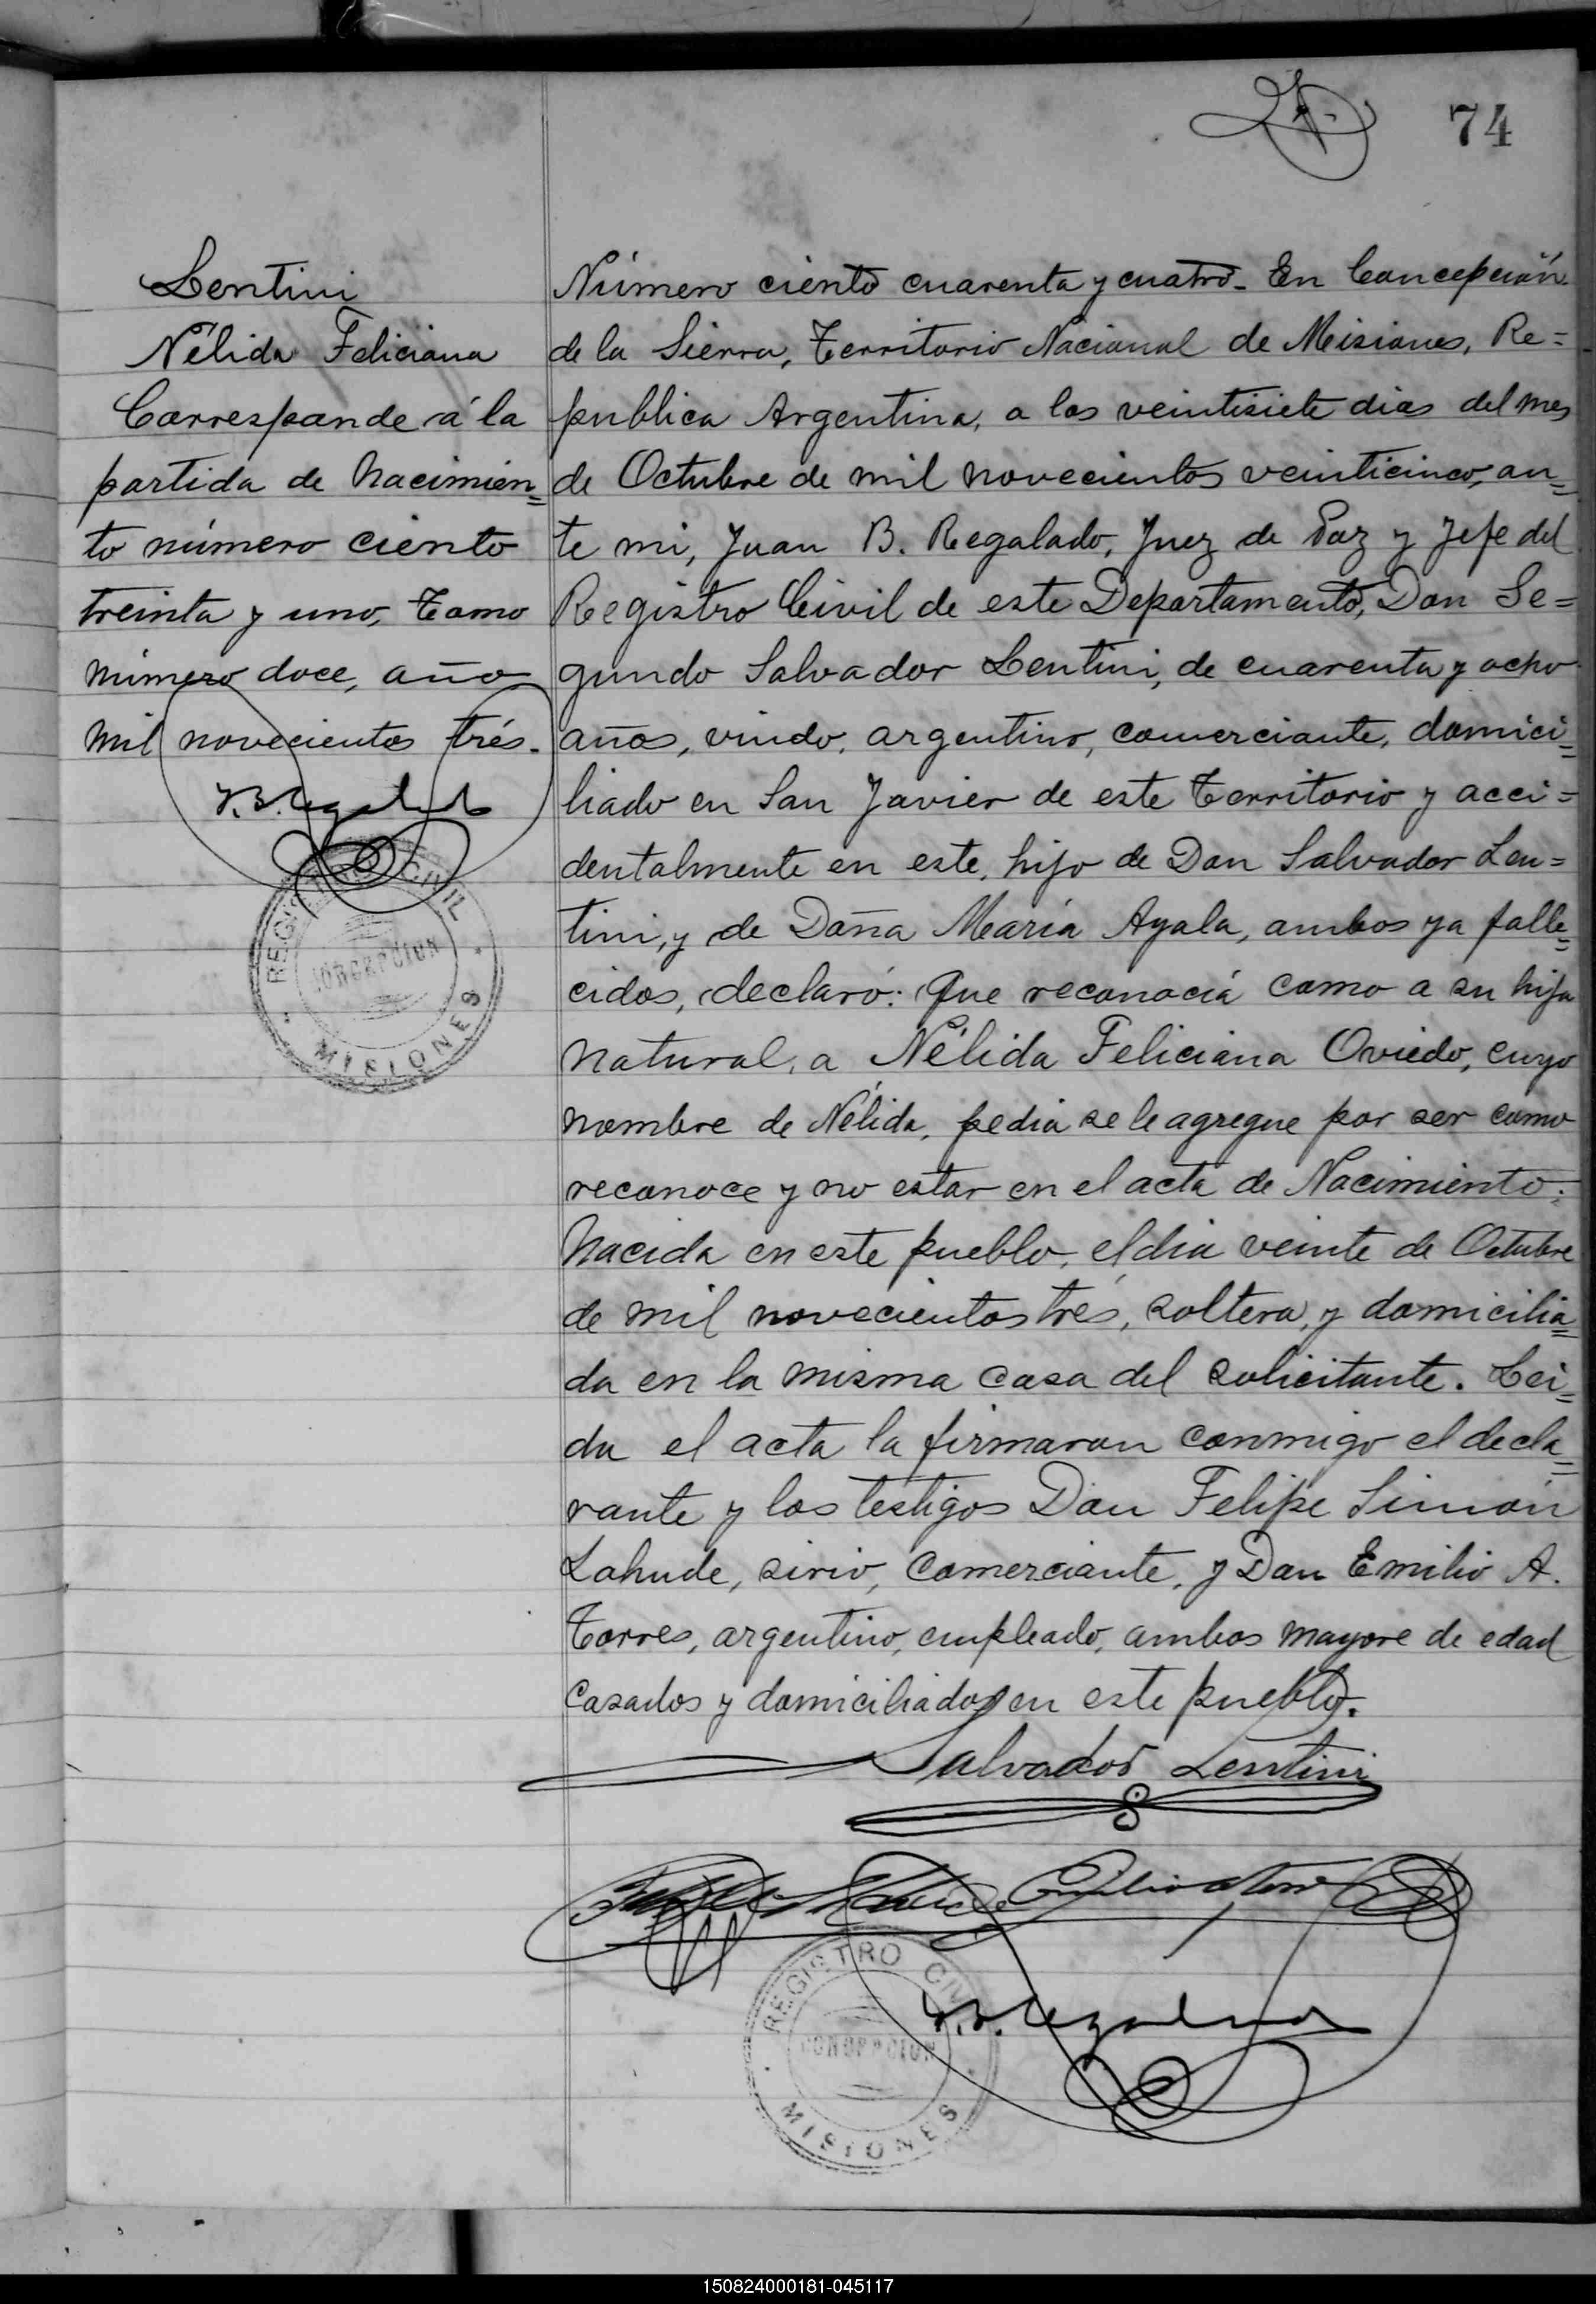 74
Lentini
Nélida Feliciana
Corresponde á la
partida de Nacimien=
to número ciento
treinta y uno, Tomo
número doce, año
mil novecientos trés.
J.B. Regalado
REGISTRO CIVIL
CONCEPCION
MISIONES
Número ciento cuarenta y cuatro. En Concepción
de la Sierra, Territorio Nacional de Misiones, Re=
publica Argentina, a los veintisiete dias del mes
de Octubre de mil novecientos veinticinco, an=
te mi, Juan B. Regalado, Juez de Paz y Jefe del
Registro Civil de este Departamento, Don Se=
gundo Salvador Lentini, de cuarenta y ocho
años, viudo, argentino, comerciante, domici=
liado en San Javier de este Territorio y acci=
dentalmente en este, hijo de Don Salvador Len=
tini, y de Doña María Ayala, ambos ya falle=
cidos, declaró: Que reconociá como a su hija
natural, a Nélida Feliciana Oviedo, cuyo
nombre de Nélida, pedia se le agregue por ser como
reconoce y no estar en el acta de Nacimiento;
Nacida en este pueblo, el dia veinte de Octubre
de mil novecientos tres, soltera, y domicilia=
da en la misma casa del solicitante. Lei=
da el acta la firmaron conmigo el decla=
rante y los testigos Don Felipe Simón
Lahude, sirio, comerciante, y Don Emilio A.
Torres, argentino, empleado, ambos mayore de edad
casados y domiciliados en este pueblo.
Salvador Lentini
Emilio A Torres
J.B. Regalado
REGISTRO CIVIL
CONCEPCION
MISIONES
150824000181-045117